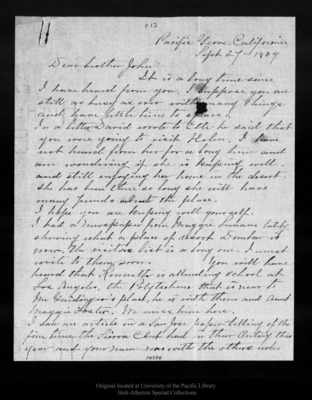 11
Pacific Grove, California
Sept 27 - 1909
Dear brother John:
It is a long time since
I have heard from you. I suppose you are
still as busy as ever with many things
and have little time to spare.
In a letter David wrote to Etta he said that
you were going to visit Helen. I have
not heard from her for so long time and
am wondering if she is keeping well
and still enjoying her home in the desert.
She has been there so long she will have
many friends about the place.
I hope you are keeping well yourself.
I had a newspaper from Maggie lately
showing what a place of resort it
is now. The visitors list is a long one. I must
write to them soon. You will have
heard that Kenneth is attending school at
Los Angeles, the Polytechnic that is near to
Mr place, he is with them and Aunt
Maggie We miss him here.
I saw an article in a San Jose paper telling of the
fine time the Sierra Club had in their Outing this
year and your name was with the others who
Original located at University of the Pacific Library
Holt-Atherton Special Collections